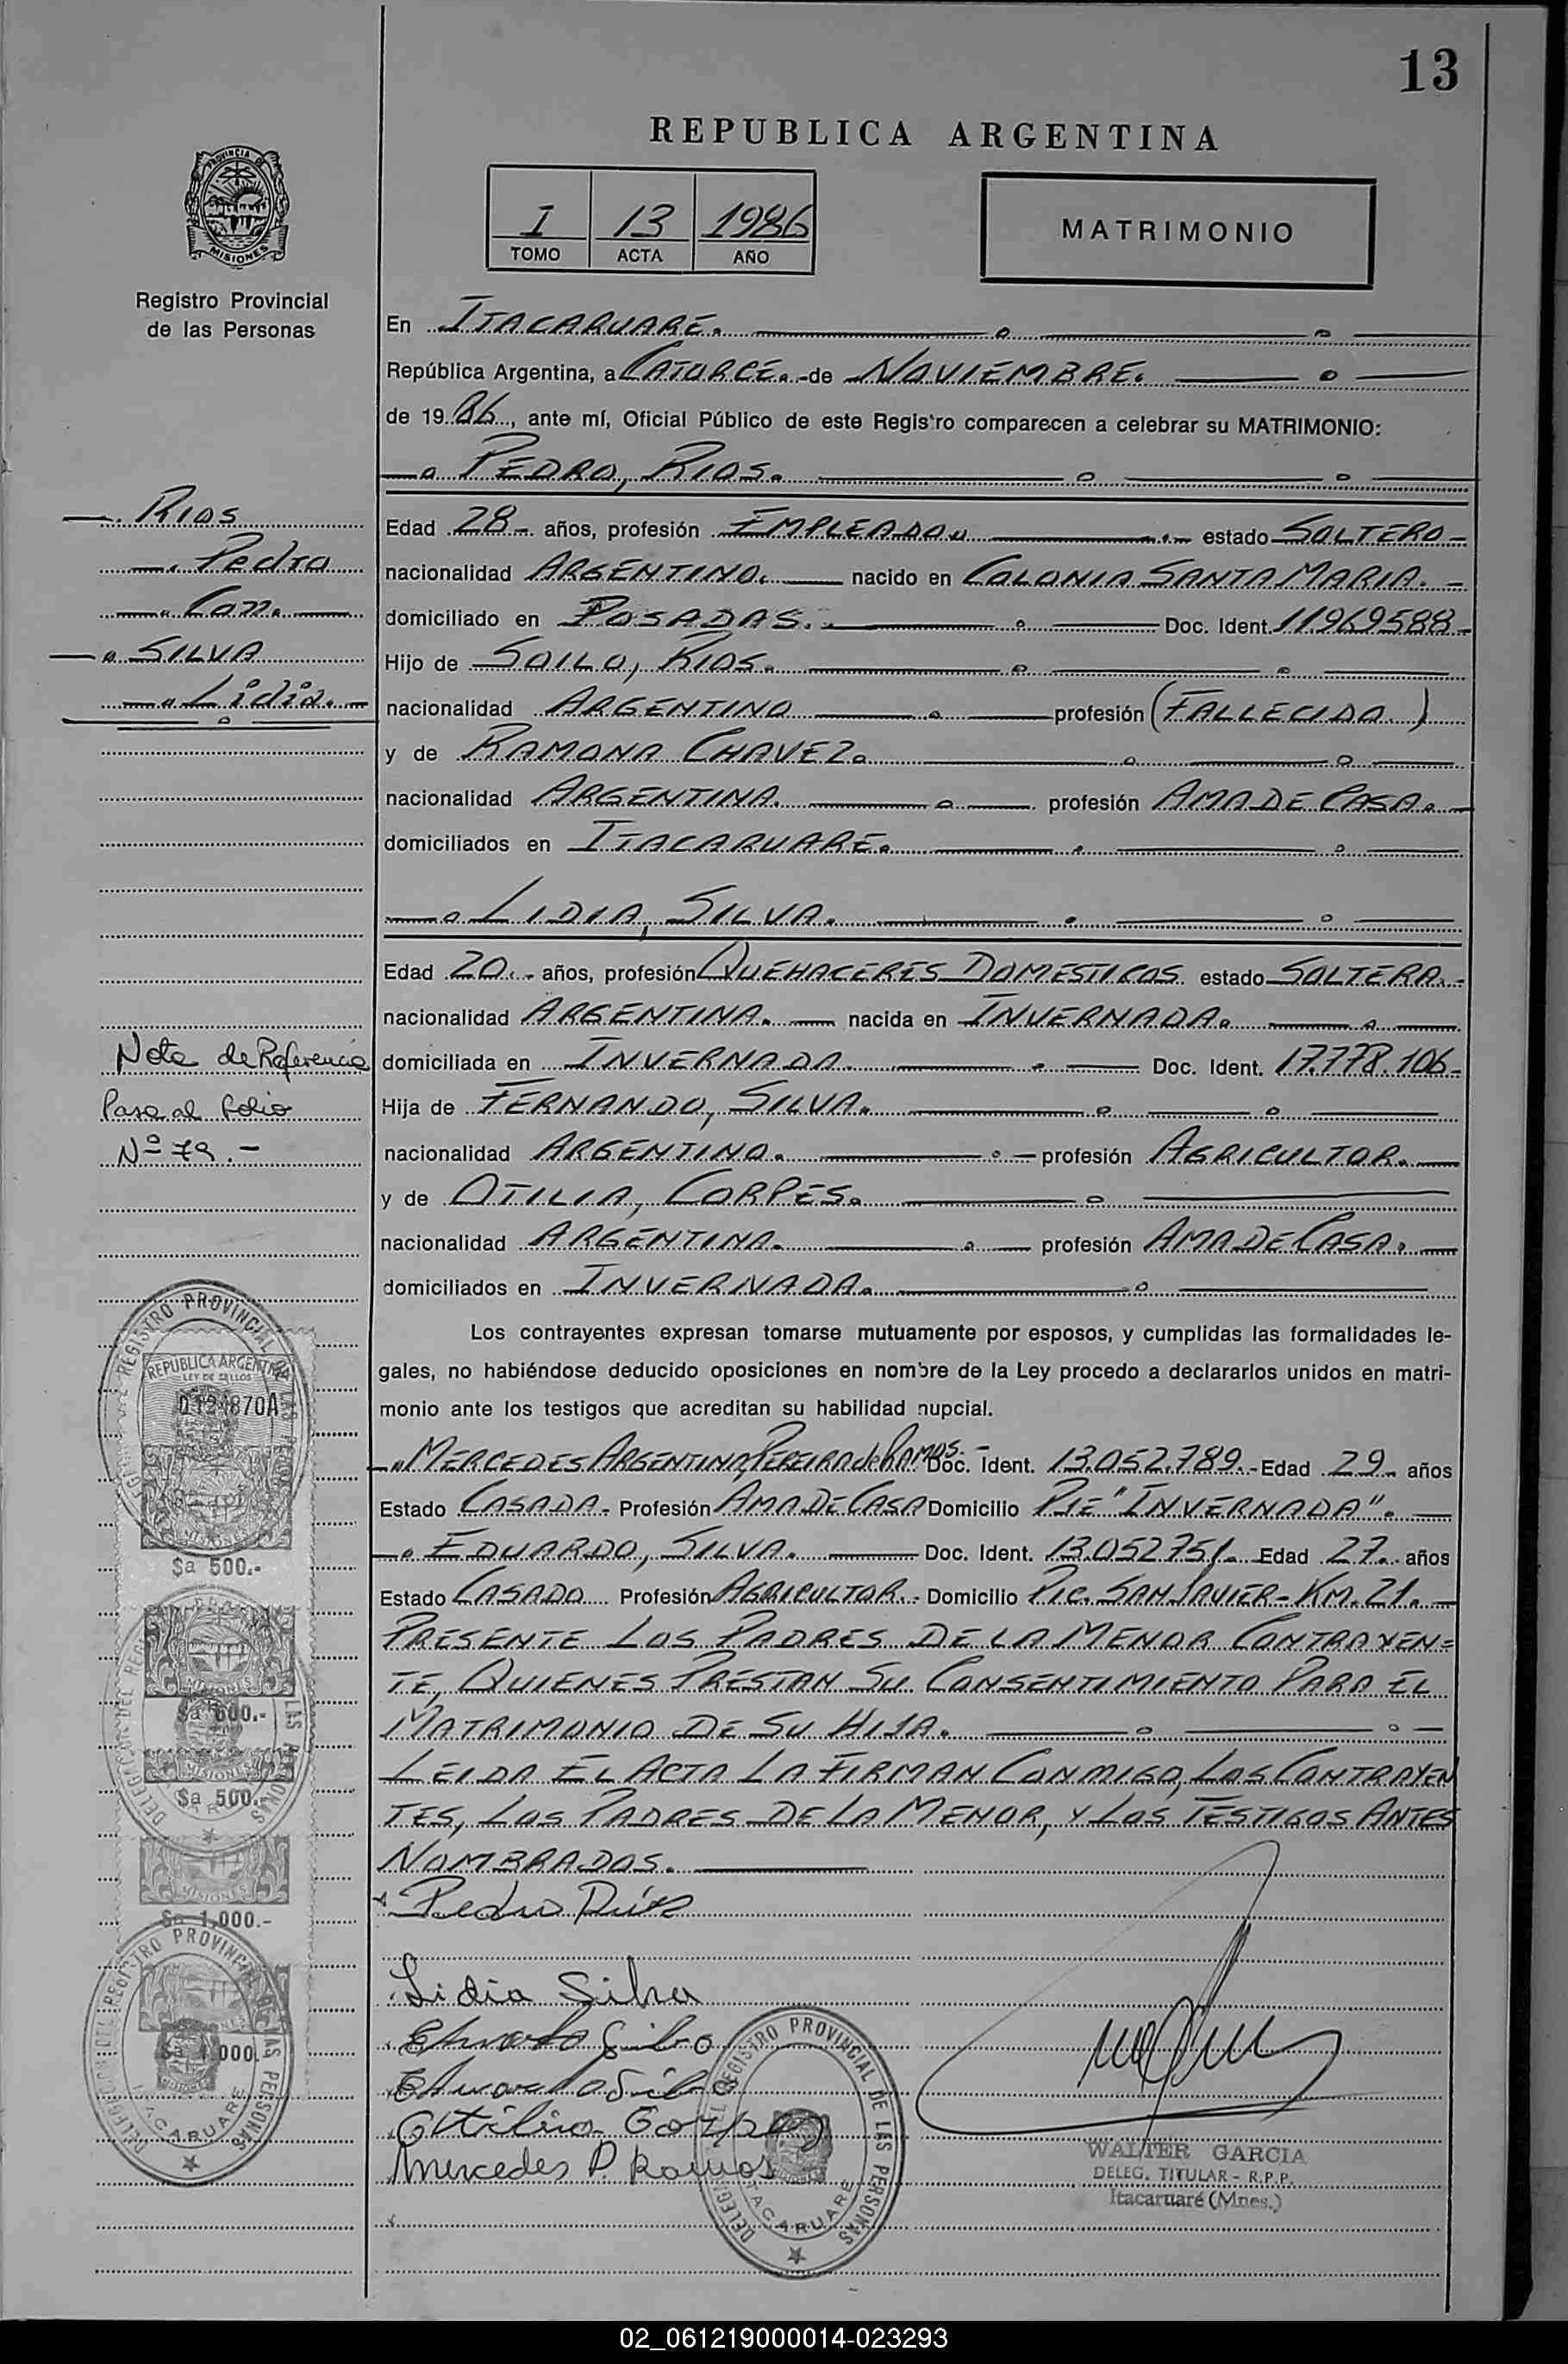 13
REPUBLICA ARGENTINA
I 13 1986
TOMO ACTA AÑO
MATRIMONIO
PROVINCIA DE
MISIONES
Registro Provincial
de las Personas
En ITACARUARE.
República Argentina, a CATORCE. de NOVIEMBRE.
de 19 86, ante mí, Oficial Público de este Registro comparecen a celebrar su MATRIMONIO:
PEDRO, RIOS.
RIOS
Pedro
Con.
SILVA
Lidia.
Edad 28 años, profesión EMPLEADO. estado SOLTERO
nacionalidad ARGENTINO. nacido en COLONIA SANTA MARIA.
domiciliado en POSADAS. Doc. Ident. 11969588
Hijo de SOILO, RIOS.
nacionalidad ARGENTINO profesión (FALLECIDO.)
y de RAMONA CHAVEZ.
nacionalidad ARGENTINA. profesión AMA DE CASA.
domiciliados en ITACARUARE.
LIDIA, SILVA.
Edad 20. años, profesión QUEHACERES DOMESTICOS estado SOLTERA.
nacionalidad ARGENTINA. nacida en INVERNADA.
domiciliada en INVERNADA. Doc. Ident. 17.778.106
Hija de FERNANDO, SILVA.
nacionalidad ARGENTINO. profesión AGRICULTOR.
y de OTILIA, CORPES.
nacionalidad ARGENTINA. profesión AMA DE CASA.
domiciliados en INVERNADA.
Nota de Referencia
Pasa al folio
Nº 79.-
Los contrayentes expresan tomarse mutuamente por esposos, y cumplidas las formalidades le-
gales, no habiéndose deducido oposiciones en nombre de la Ley procedo a declararlos unidos en matri-
monio ante los testigos que acreditan su habilidad nupcial.
MERCEDES ARGENTINA, PEREIRA de RAMOS.- Doc. Ident. 13.052.789.- Edad 29 años
Estado CASADA- Profesión AMA DE CASA Domicilio PJE "INVERNADA".
EDUARDO, SILVA. Doc. Ident. 13.052751. Edad 27. años
Estado CASADO Profesión AGRICULTOR.- Domicilio PIC. SAN JAVIER- KM. 21.
PRESENTE LOS PADRES DE LA MENOR CONTRAYEN=
TE, QUIENES PRESTAN SU CONSENTIMIENTO PARA EL
MATRIMONIO DE SU HIJA.
LEIDA EL ACTA LA FIRMAN CONMIGO, LOS CONTRAYEN
TES, LOS PADRES DE LA MENOR, Y LOS TESTIGOS ANTES
NOMBRADOS.
Pedro Ríos
Lidia Silva
Eduardo Silva
Mercedes P. Ramos
REGISTRO PROVINCIAL DE LAS PERSONAS
REPUBLICA ARGENTINA
LEY DE SELLOS
MISIONES
$a 500.-
$a 500.-
MISIONES
$a 1.000.-
DELEGACION DEL REGISTRO PROVINCIAL DE LAS PERSONAS
ITACARUARE
DELEGACION DEL REGISTRO PROVINCIAL DE LAS PERSONAS
ITACARUARE
WALTER GARCIA
DELEG. TITULAR - R.P.P.
Itacaruaré (Mnes.)
02_061219000014-023293